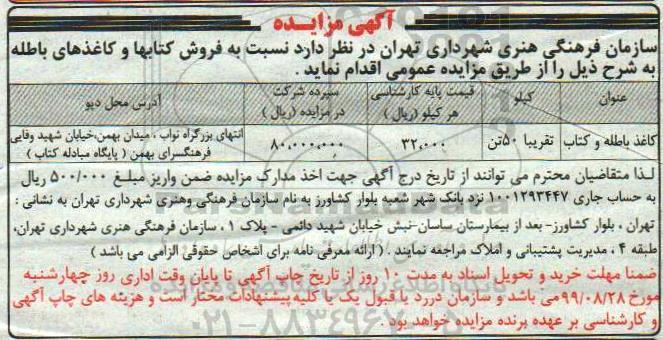 آگهی مزایده
سازمان فرهنگی هنری شهرداری تهران در نظر دارد نسبت به فروش کتابها و کاغذهای باطله
به شرح ذیل را از طریق مزایده عمومی اقدام نماید .
عنوان
کیلو
قیمت پایه کارشناسی
هر کیلو (ریال)
سپرده شرکت
در مزایده (ریال)
آدرس محل دپو
کاغذ باطله و کتاب
تقریبا ۵۰تن
۳۲,۰۰۰
۸۰,۰۰۰,۰۰۰
انتهای بزرگراه نواب ، میدان بهمن،خیابان شهید وفایی
فرهنگسرای بهمن ( پایگاه مبادله کتاب )
لذا متقاضیان محترم می توانند از تاریخ درج آگهی جهت اخذ مدارک مزایده ضمن واریز مبلغ ۵۰۰/۰۰۰ ریال
به حساب جاری ۱۰۰۱۲۹۳۴۴۷ نزد بانک شهر شعبه بلوار کشاورز به نام سازمان فرهنگی وهنری شهرداری تهران به نشانی :
تهران ، بلوار کشاورز- بعد از بیمارستان ساسان-نبش خیابان شهید دائمی - پلاک ۱ ، سازمان فرهنگی هنری شهرداری تهران،
طبقه ۴ ، مدیریت پشتیبانی و املاک مراجعه نمایند . ( ارائه معرفی نامه برای اشخاص حقوقی الزامی می باشد )
ضمنا مهلت خرید و تحویل اسناد به مدت ۱۰ روز از تاریخ چاپ آگهی تا پایان وقت اداری روز چهارشنبه
مورخ ۹۹/۰۸/۲۸ می باشد و سازمان دررد یا قبول یک یا کلیه پیشنهادات مختار است و هزینه های چاپ آگهی
و کارشناسی بر عهده برنده مزایده خواهد بود .
۰۲۱-۸۸۳۴۹۶۷۰-۵